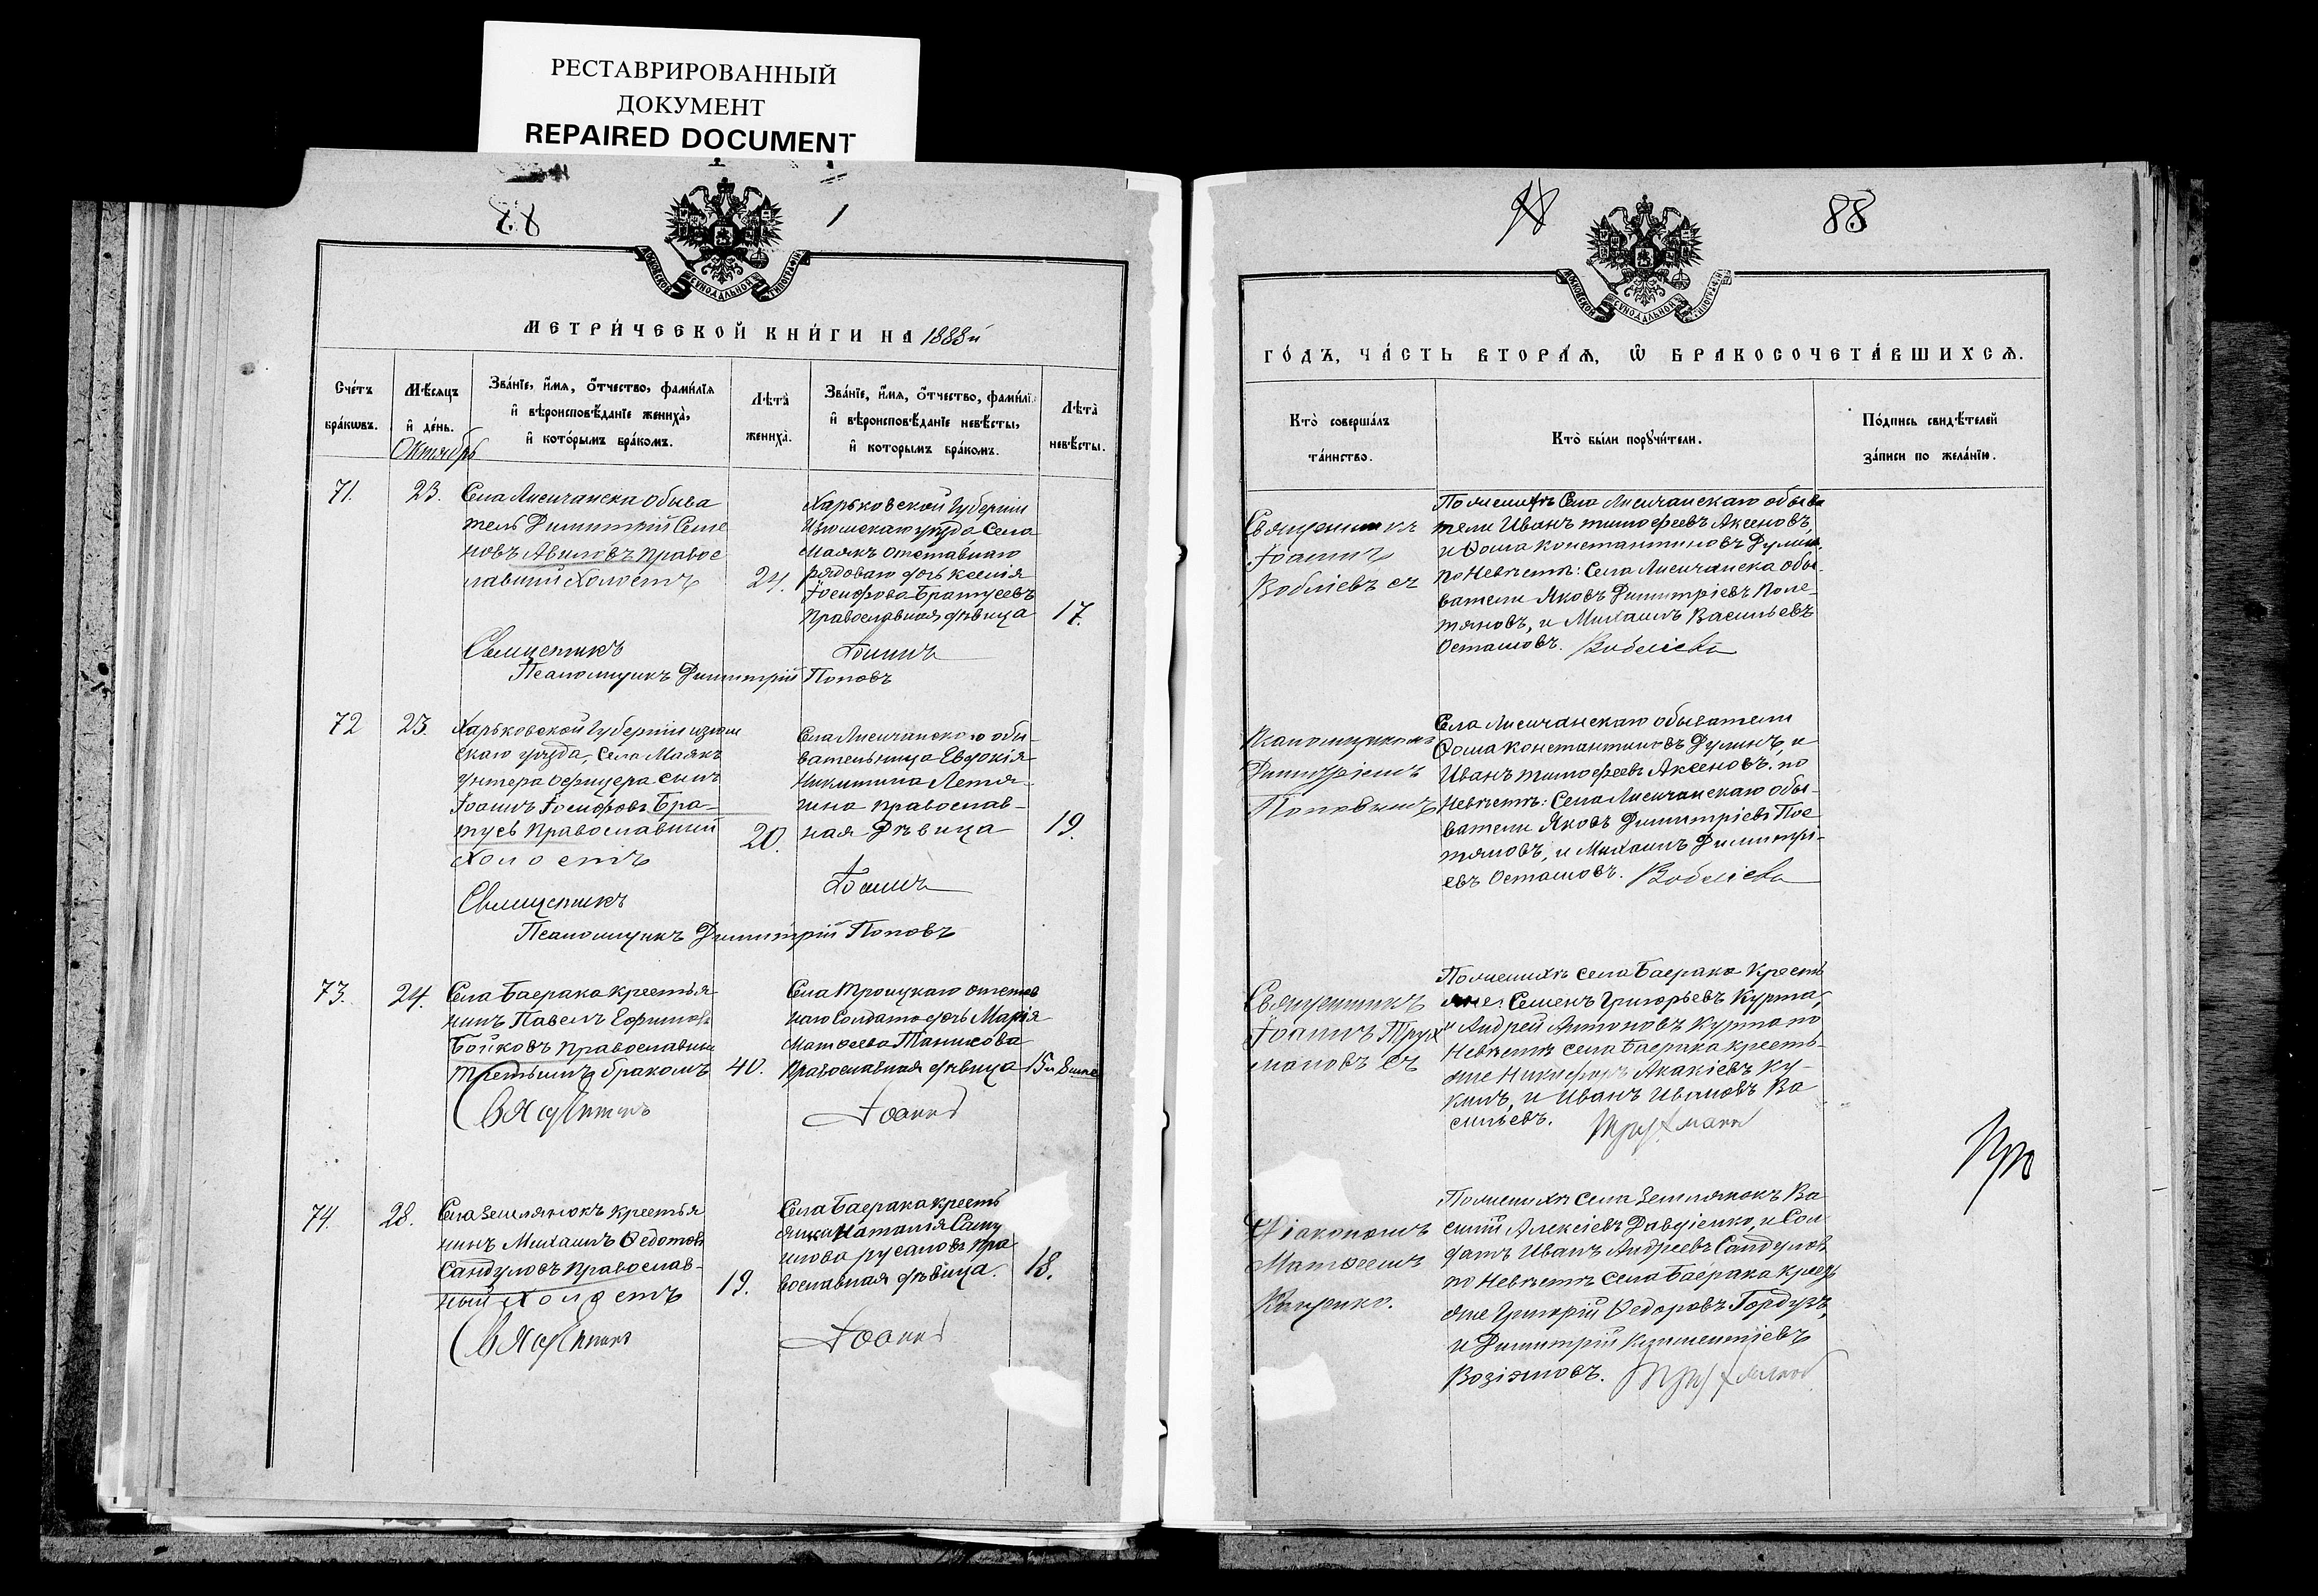 РЕСТАВРИРОВАННЫЙ
ДОКУМЕНТ
REPAIRED DOCUMENT
88
МЕТРИ́ЧЕСКОЙ КНИ́ГИ НА 1888й
Сче́тъ
бра́кѡвъ.
Мѣ́сяцъ
й де́нь.
Октябрь
Зва́нїе, и́мѧ, ѻ́тчество, фами́лїѧ
и҆ вѣроисповѣ́данїе жениха̀,
и҆ кото́рымъ бра́комъ.
Лѣта̀
жениха̀.
Зва́нїе, и́мѧ, ѻ́тчество, фами́лї
и҆ вѣроисповѣ́данїе невѣ́сты,
и҆ которымъ бра́комъ.
Лѣта̀
невѣ́сты.
71.
23.
Села Лисичанска обыва
тель Димитрій Семе
новъ Авиловъ правос
лавный Холостъ
24.
Харьковской Губерніи
Изюмскаго уѣзда Села
Маякъ отставнаго
рядоваго дочь Ксенія
Іосифова Братусевъ
Православная дѣвица
17.
Священникъ Іоаннъ
Псаломщикъ Димитрій Поповъ
72
23.
Харьковской Губерніи изюм
скаго уѣзда, Села Маякъ
Унтера Офицера сынъ
Іоаннъ Іосифовъ Бра-
тусь Православный
Холостъ
20.
Села Лисичанского обы-
вательница Евдокія
Никитина Летя-
гина православ-
ная Дѣвица
19.
Священникъ Іоаннъ
Псаломщикъ Димитрій Поповъ
73.
24.
Села Баерака крестья-
нинъ Павелъ Ефимовъ
Бойковъ православный
третьимъ бракомъ
40.
Села Троицкаго отстав
наго Солдата дочь Марія
Матѳеева Танцова
Православная дѣвица
Священникъ Іоаннъ
74.
28.
Села Землянокъ крестья
нинъ Михаилъ Ѳедотовъ
Сандуловъ православ-
ный Холостъ
19.
Села Баерака кресть
янка Наталія Саму
илова русаловъ пра
вославная дѣвица.
18.
Священникъ Іоаннъ
88
ГО́ДЪ, ЧА́СТЬ ВТОРА́Ѧ, Ѡ҆ БРАКОСОЧЕТА́ВШИХСѦ.
Кто̀ соверша́лъ
та́инство.
Кто̀ бы́ли порꙋчи́тели.
По́дпись свидѣ́телей
за́писи по жела́нїю.
Священникъ
Іоаннъ
По женихѣ Села Лисичанскаго обыва
тели Иванъ тимофеевъ Аксеновъ,
и Ѳома Константиновъ Дулинъ.
по Невѣстѣ: Села Лисичанска обы-
ватели Яковъ Димитріевъ Поле-
тяновъ, и Михаилъ Васильевъ
Осташовъ.
Псаломщикомъ
Димитріемъ
Поповымъ
Села Лисичанскаго обыватели
Ѳома Константиновъ Дулинъ, и
Иванъ тимофеевъ Аксеновъ. по
Невѣстѣ: Села Лисичанскаго обы-
ватели Яковъ Димитріевъ Пое
тяновъ, и Михаилъ Димитрі-
евъ Осташовъ.
Священникъ
Іоаннъ Трух
мановъ съ
По женихѣ села Баерака Кресть
яне: Семенъ Григорьевъ Курта,
и Андрей Антоновъ Курта по
Невѣстѣ села Баерака кресть-
яне Никифоръ Акакіевъ Ку-
кинъ, и Иванъ Ивановъ Ва
сильевъ.
Діакономъ
Матѳеемъ
По женихѣ села Землянокъ Ва
силій Алексіевъ Давдіенко, и Сол
датъ Иванъ Андреевъ Сандуловъ
по Невѣстѣ села Баерака кресть
яне Григорій Ѳедоровъ Гордузъ,
и Димитрій Климентіевъ
Возіяновъ.